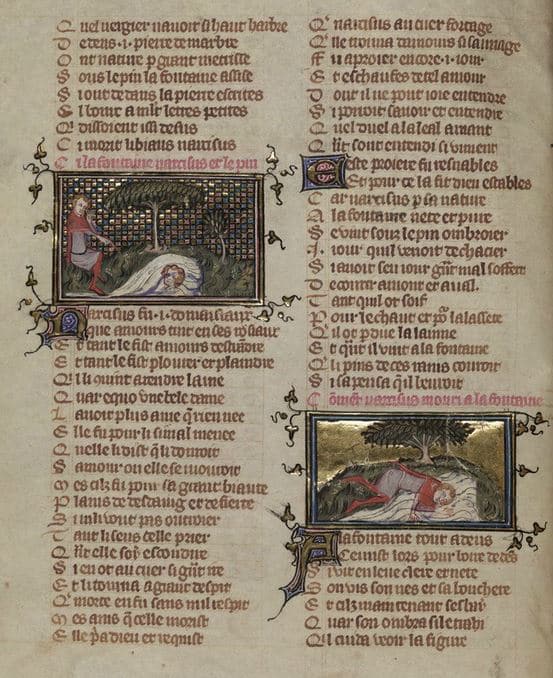 Q uel vergier nauoit si haut harbre
D edens .i. pierre de marbre
O nt nature p grant mestrise
S ous le pin la fontaine assise
S i out dedans la pierre escrites
E l bout amont lettres petites
Q disoient issi desus
C i morit libiaus narcisus
C i la fontaine narcisus et le pin
Narcisus fu .i. domoisiaux
que amours tint en ses roisaux
E t tant le fist amours destraindre
E t tant le fist plourer et plaindre
Q l li quint a rendre lame
Q uar equo vne bele dame
L auoit plus ame q rien nee
E lle fu pour li si mal menee
Q uelle li dist ql li donroit
S amour ou elle se mourroit
M es cilz fu pour sa grant biaute
P lains de desdaing et de fierte
S i li vout pas outroier
T ant li seust elle prier
Q nt elle soy escondire
S i en ot au cuer si gnt ire
E t li tourna a grant despit
Q morte en fu sans nul respit
M es ains q celle morist
E lle pa dieu et requist
Q narcisus au cuer fortage
Q lle trouua damours si sauuage
F u aproier encore .i. iour
E t eschaufes de tel amour
D ont il ne pout ioie entendre
S i porroit sauoir et entendre
Q uel duel a la leal amant
Q lit sont entendi si vuient
Ceste proiere fu resnables
Et pour ce la fit dieu estables
C ar narcisus p sa nature
A la fontaine nete et pure
S e vint sous le pin ombroier
.I. iour quil venoit de chacier
S i auoit ceu iour gnt mal soffert
D e courre amont et aual
T ant quil ot soif
P our le chaut et po la lassete
Q il ot pdue la laine
E t qnt il vint a la fontaine
Q li pins de ces rains couuroit
S i sa pensa qil beuroit
C oment narcisus mouri a la fontaine
A la fontaine tout adens
Ce mist lors pour boire dedens
S i voit en leue clere et nete
S on vis son nes et sa bouchete
E t cilz maintenant sesbahi
Q uar son ombre si le trahi
Q l cuida veoir la figure